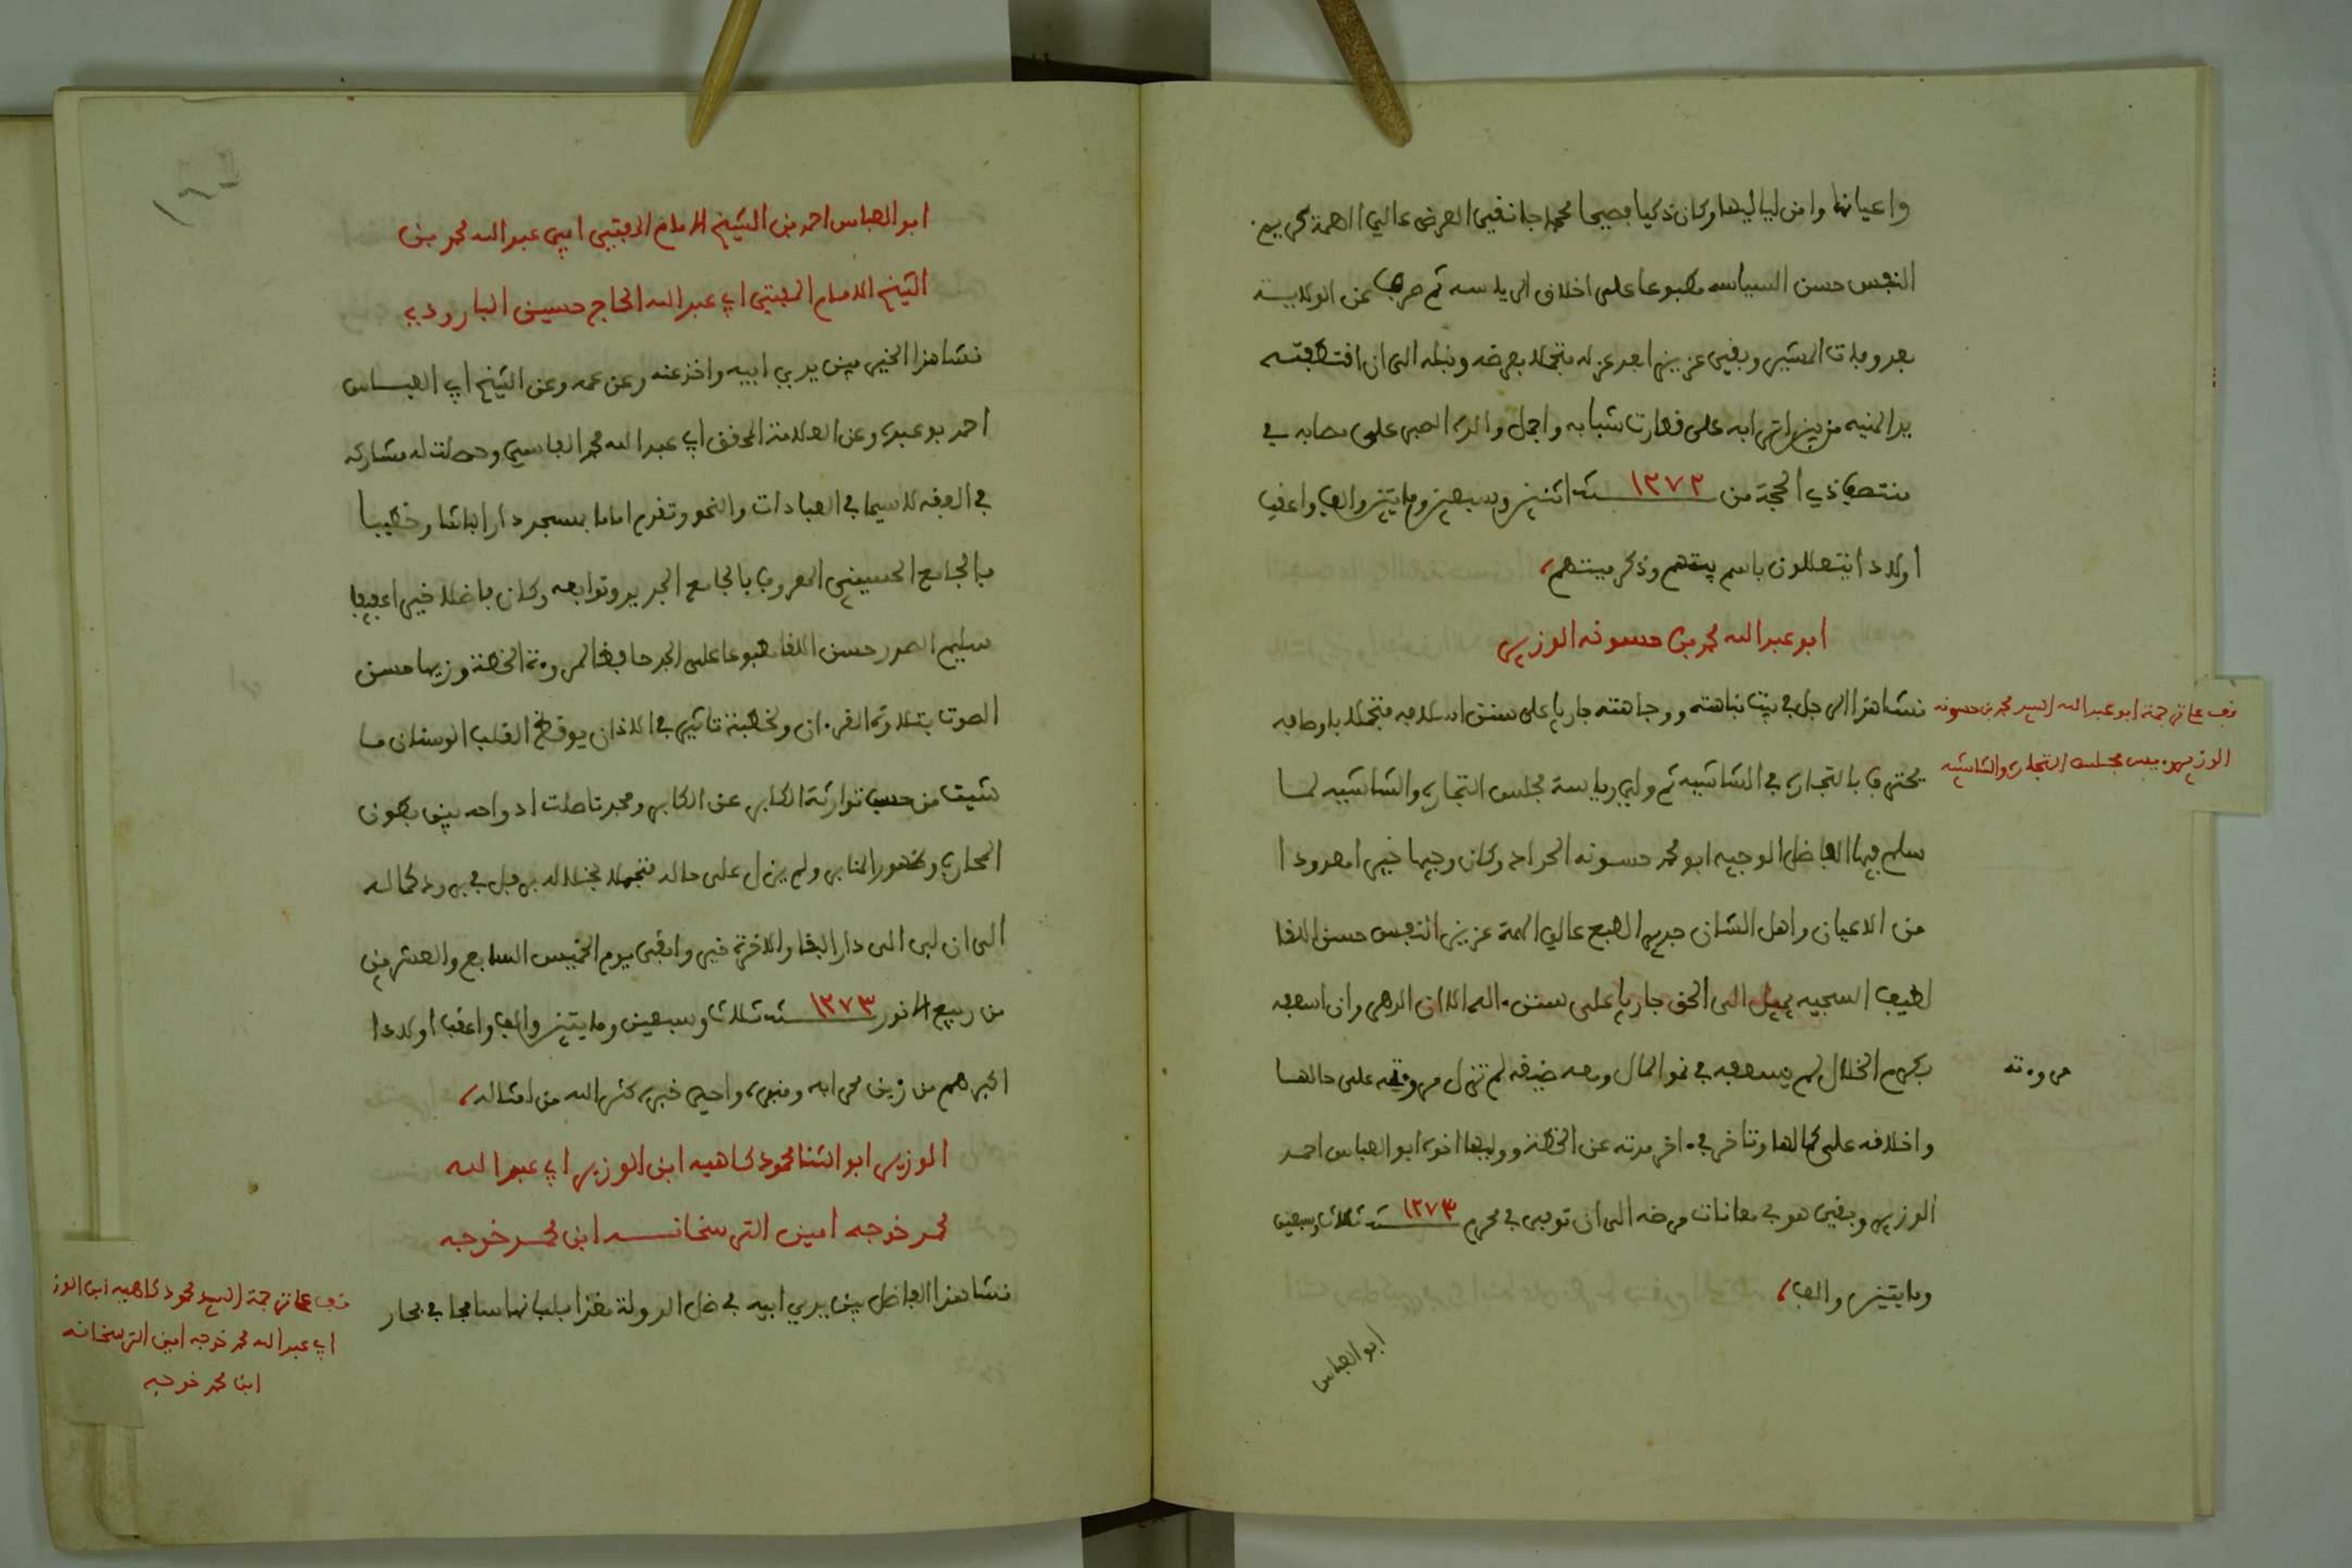 واعيانها وامن لياليها وكان ذكيا فصيحا محمد جا نقي العرض عالي الهمة كريم
النفس حسن السياسه مطبوعا على اخلاق الرياسه ثم صرف عن الولاية
بعد وفات المشير وبقي عزيزا بعد عزله متجملا بعرضه ونبله الى ان اقتطفته
يد المنيه من بين اترابه على فضارت شبابه واجمل والده الصبر على مصابه في
منتصف ذي الحجة من سنة ١٢٧٢ اثنين وسبعين ومايتين والف واعقب
اولادا يتعللون باسم بيتهم وذكر ميتهم
ابو عبد الله محمد بن حسونه الوزير
نشا هذا الرجل في بيت نباهته ووجاهته جاريا على سنن اسلافه متجملا باوصافه
محترفا بالتجاره في الشاشيه ثم ولي رياسة مجلس التجاره والشاشيه لما
سلم فيها الفاضل الوجيه ابو محمد حسونه الحداد وكان وجيها خيرا معدودا
من الاعيان واهل الشان جيد الطبع عالي الهمة عزيز النفس حسن اللقا
لطيف السجيه يميل الى الحق جاريا على سنن ءاله الا ان الدهر وان اسعفه
بكرم الخلال لم يسعفه في نمو المال ومع ضيقه لم تزل مروءته على حالها
مروءته
واخلاقه على كمالها وتاخر في ءاخر مدته عن الخطة ووليها اخوه ابو العباس احمد
الوزير وبقي هو في معانات مرضه الى ان توفي في محرم سنة ١٢٧٣ ثلاث وسبعين
ومايتين والف
ابو العباس
قف على ترجمة ابو عبد الله السيد محمد بن حسونه
الوزير رييس مجلس التجاره والشاشيه
ابو العباس احمد بن الشيخ الامام المفتي ابي عبد الله محمد بن
الشيخ الامام المفتي ابي عبد الله الحاج حسين البارودي
نشا هذا الخير بين يدي ابيه واخذ عنه وعن عمه وعن الشيخ ابي العباس
احمد بو عبده وعن العلامة المحقق ابي عبد الله محمد الفاسي وحصلت له مشاركه
في الفقه لا سيما في العبادات والنحو وتقدم اماما بمسجد دار الباشا وخطيبا
بالجامع الحسيني المعروف بالجامع الجديد وتوابعه وكان فاضلا خيرا عفيفا
سليم الصدر حسن اللقا مطبوعا على الجد حافظا لمروءة الخطة وزيها حسن
الصوت بتلاوة القرءان ولخطبته تاثير في الاذان يوقظ القلب الوسنان ما
شيت من حسب توارثه الكابر عن الكابر ومجد تاصلت ادواحه بين بطون
المحاريب وظهور المنابر ولم يزل على حاله متجملا بخلاله يرفل في برود كماله
الى ان لبى الى دار البقا والاخرة خير وابقى يوم الخميس السابع والعشرين
من ربيع الانور سنة ١٢٧٣ ثلاث وسبعين ومايتين والف واعقب اولادا
اكبرهم من زين محرابه ومنبره واحيى خبره كثر الله من امثاله
الوزير ابو الثنا محمود كاهيه ابن الوزير ابي عبد الله
محمد خوجه امين الترسخانه ابن محمد خوجه
نشا هذا الفاضل بين يدي ابيه في ظل الدولة مغذا بلبانها سابحا في بحار
قف على ترجمة السيد محمود كاهيه ابن الوز
ابي عبد الله محمد خوجه امين الترسخانه
ابن محمد خوجه